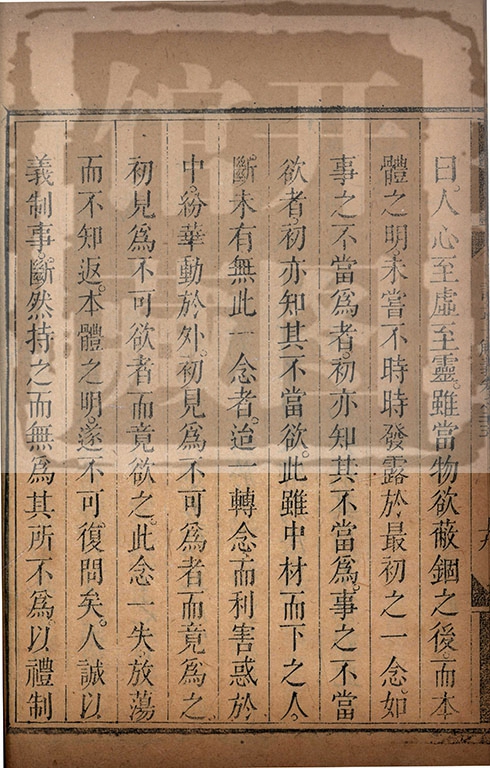 曰。人心至虛至靈。雖當物欲蔽錮之後。而本
體之明。未嘗不時時發露於最初之一念。如
事之不當爲者。初亦知其不當爲。事之不當
欲者。初亦知其不當欲。此雖中材而下之人。
斷未有無此一念者。迨一轉念。而利害惑於
中。紛華動於外。初見爲不可爲者而竟爲之。
初見爲不可欲者而竟欲之。此念一失。放蕩
而不知返。本體之明。遂不可復問矣。人誠以
義制事。斷然持之而無爲其所不爲。以禮制